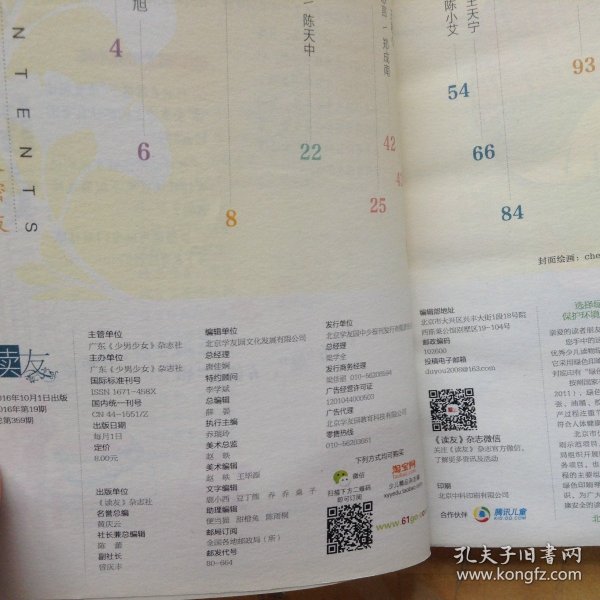 旭
4
6
8
一 陈天中
22
郑成南
42
25
陈小艾
王天宁
54
66
84
93
CONTENTS
封面绘画：che
读友
2016年10月1日出版
2016年第19期
总第359期
主管单位
广东《少男少女》杂志社
主办单位
广东《少男少女》杂志社
国际标准刊号
ISSN 1671-458X
国内统一刊号
CN 44-1551/Z
出版日期
每月1日
定价
8.00元
出版单位
《读友》杂志社
名誉总编
黄庆云
社长兼总编辑
陈
副社长
曾庆丰
编辑单位
北京学友园文化发展有限公司
总经理
唐佳娴
特约顾问
李学斌
总编辑
薛 晏
执行主编
乔瑞玲
美术总监
赵 昳
美术编辑
赵 昳 王毕茜
文字编辑
鹿小西 豆丁熊 乔 乔 桌 子
助理编辑
便当猫 甜橙兔 陈雨桐
邮局订阅
全国各地邮政局（所）
邮发代号
80-664
发行单位
北京学友园中少报刊发行有限责任公司
总经理
梁学全
发行商务经理
梁岳磊 010-56209594
广告经营许可证
1201044000503
广告代理
北京学友园教育科技有限公司
零售热线
010-56203661
下列方式均可购买
微信
扫描下方二维码
即可订阅
淘宝网
少儿精品杂志铺
xyyedu.taobao.com
www.61ge
编辑部地址
北京市大兴区兴丰大街1段18号院
西斯莱公馆别墅区19-104号
邮政编码
102600
投稿电子邮箱
duyou2008@163.com
《读友》杂志微信
关注《读友》杂志官方微信，
了解更多资讯及活动
印刷
北京中科印刷有限公司
合作伙伴
腾讯儿童
KID.QQ.COM
选择绿
保护环境
亲爱的读者朋友
您手中的这
优秀少儿读物绿
它采用绿色印刷
时印有“绿色
按照国家
2011），绿色
张、油墨、胶
产过程注重节
符合人体健康
北京市
刷示范项目
局组织开展
务项目，也
绿色印刷理
识，为广大
康安全的读
北
孔夫子旧书网
www.kongfz.com